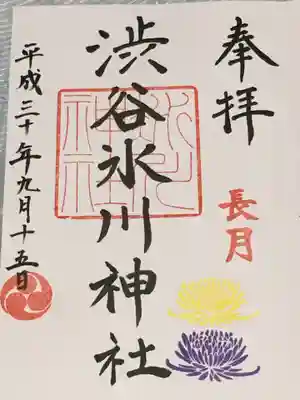 奉拝
長月
渋谷氷川神社
氷川
神社
平成三十年九月十五日